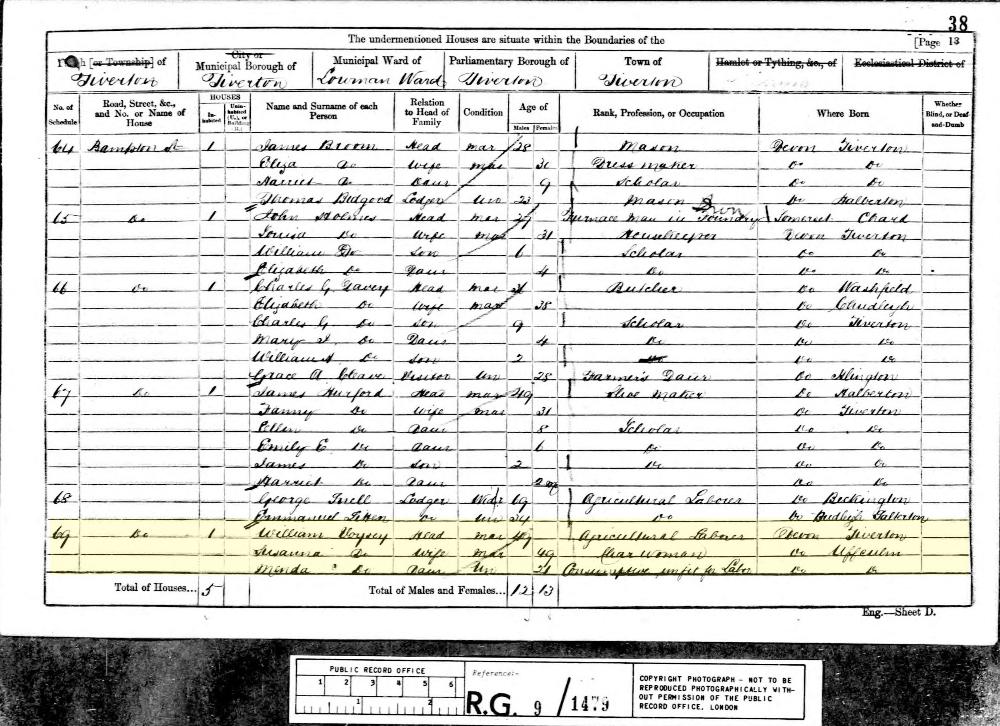 38
The undermentioned Houses are situate within the Boundaries of the [Page 13
[or Township] of City or Municipal Borough of Municipal Ward of Parliamentary Borough of Town of Hamlet or Tything, &c., of Ecclesiastical District of
Tiverton Tiverton Lowman Ward Tiverton Tiverton
No. of Schedule Road, Street, &c., and No. or Name of House HOUSES Inhabited Uninhabited (U.), or Building (B.) Name and Surname of each Person Relation to Head of Family Condition Age of Males Females Rank, Profession, or Occupation Where Born Whether Blind, or Deaf-and-Dumb
64 Bampton St 1 James Broom Head mar 28 Mason Devon Tiverton
Eliza Do Wife mar 31 Dress maker Do Do
Harriet Do Daur 9 Scholar Do Do
Thomas Bidgood Lodger Un 23 Mason Do Halberton
65 Do 1 John Holmes Head mar 27 Furnace Man in Iron Foundry Somerset Chard
Louisa Do Wife mar 31 Housekeeper Devon Tiverton
William Do Son 6 Scholar Do Do
Elizabeth Do Daur 4 Do Do Do
66 Do 1 Charles G Davey Head mar Butcher Do Washfield
Elizabeth Do Wife mar 38 Do Chudleigh
Charles G Do Son 9 Scholar Do Tiverton
Mary Do Daur 4 Do Do Do
William Do Son 2 Do Do
Grace A Cleave Visitor Un 28 Farmer's Daur Do Ilsington
67 Do 1 James Hurford Head mar 49 Shoe Maker Do Halberton
Fanny Do Wife mar 31 Do Tiverton
Ellen Do Daur 8 Scholar Do Do
Emily E Do Daur 6 Do Do Do
James Do Son 2 Do Do Do
Harriet Do Daur Do Do
68 George Lodger Widr 69 Agricultural Laborer Do
Emmanuel Do Un 24 Do Do Budleigh Salterton
69 Do 1 William Voysey Head mar 49 Agricultural Laborer Devon Tiverton
Susanna Do Wife mar 49 Char woman Do Uffculm
Menda Do Daur Un 21 Consumptive unfit for Labor Do Do
Total of Houses... 5 Total of Males and Females... 12 13
Eng.—Sheet D.
PUBLIC RECORD OFFICE
1 2 3 4 5 6
1 2
Reference:-
R.G. 9 / 1479
COPYRIGHT PHOTOGRAPH - NOT TO BE
REPRODUCED PHOTOGRAPHICALLY WITH-
OUT PERMISSION OF THE PUBLIC
RECORD OFFICE, LONDON